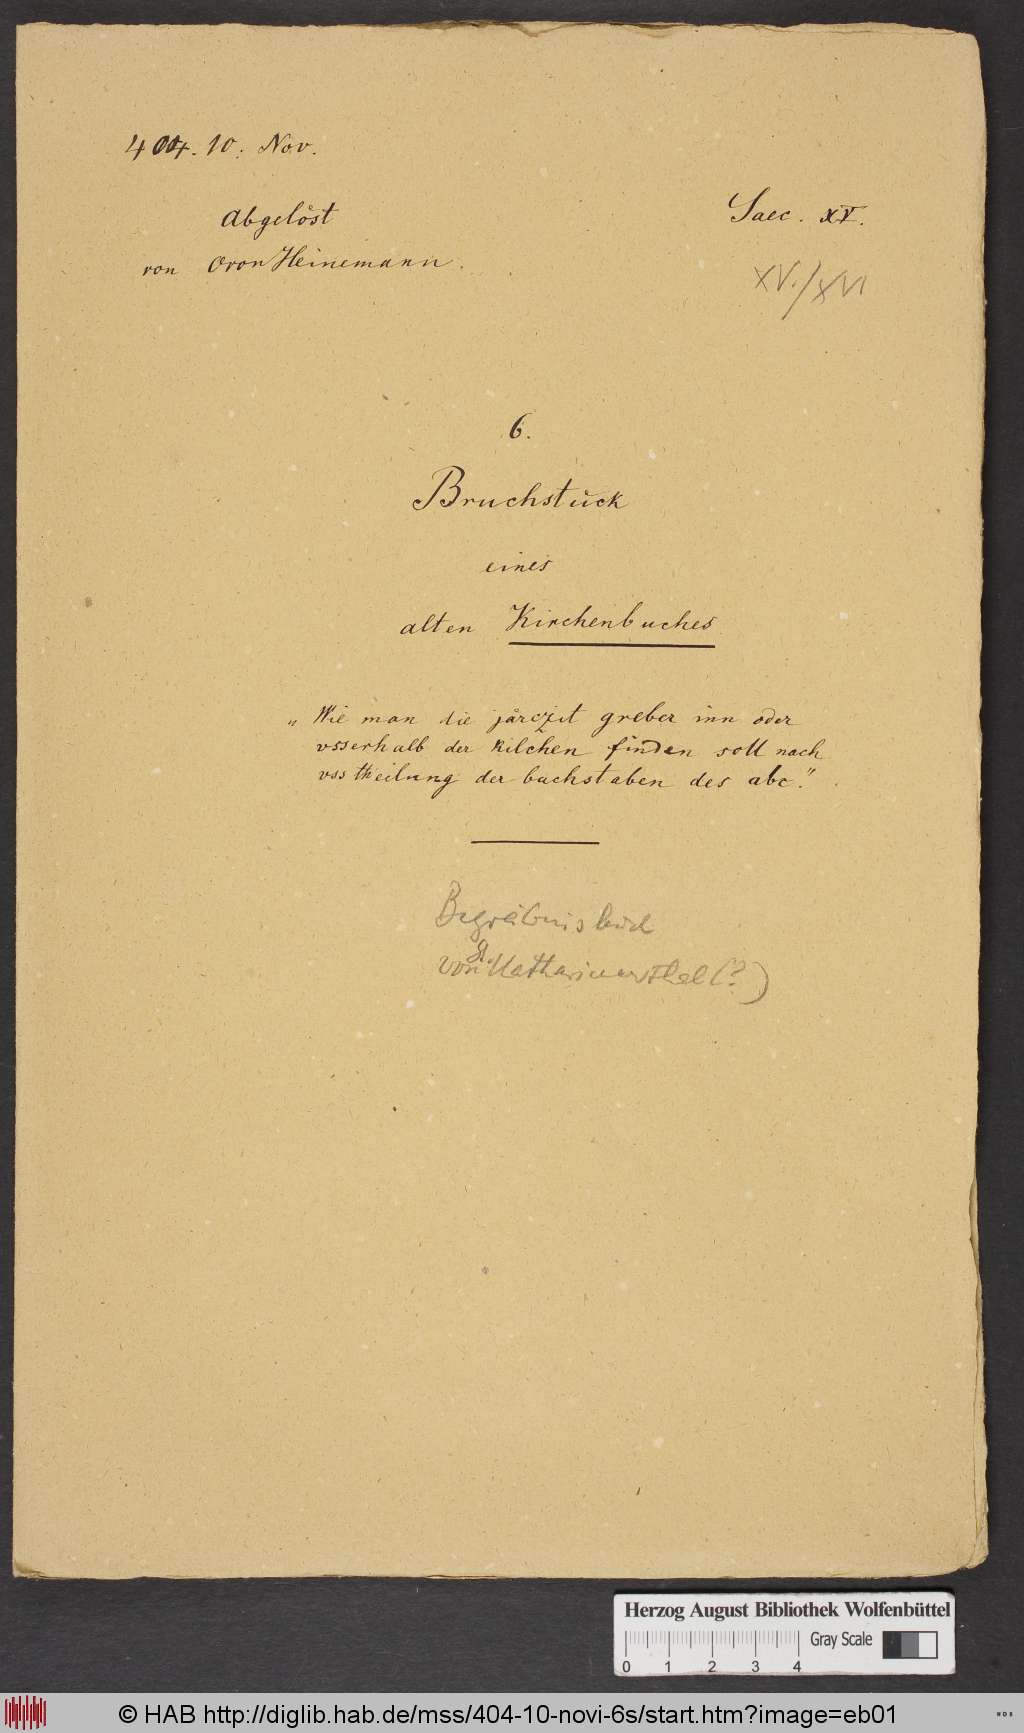 404. 10. Nov.
Abgelöst
von OvonHeinemann.
Saec. XV.
XV./XVI
6.
Bruchstück
eines
alten Kirchenbuches
„Wie man die järczit greber inn oder
vsserhalb der kilchen finden soll nach
vsstheilung der buchstaben des abc."
Begräbnisbuch
von St. Katharinenthal (?)
Herzog August Bibliothek Wolfenbüttel
Gray Scale
0 1 2 3 4
© HAB http://diglib.hab.de/mss/404-10-novi-6s/start.htm?image=eb01